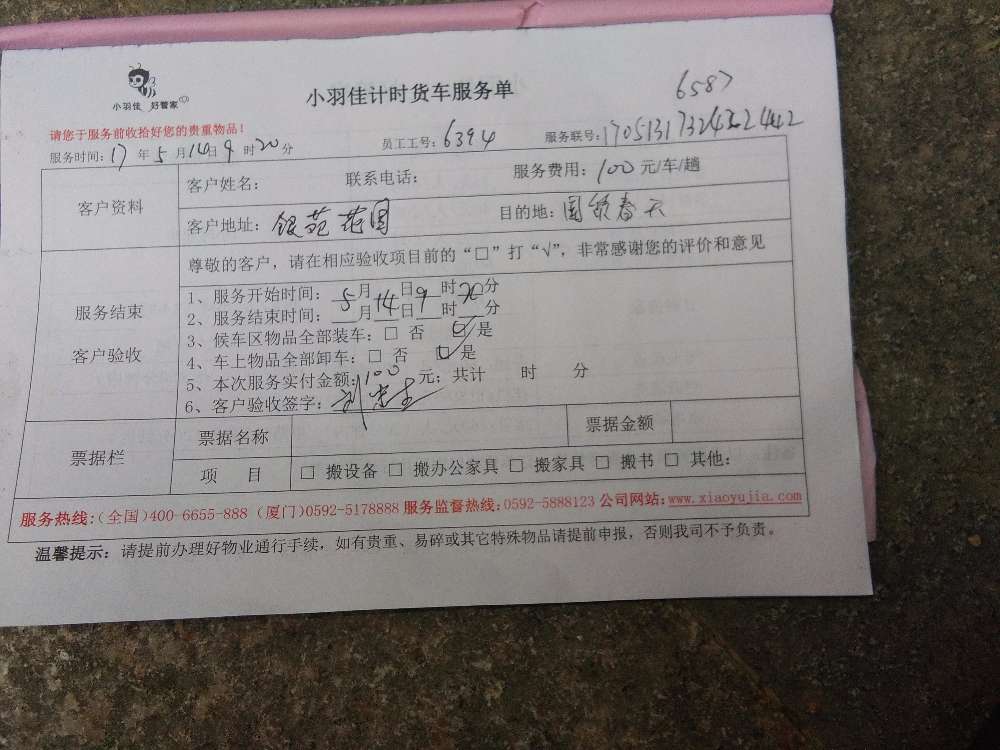 小羽佳 好管家
小羽佳计时货车服务单
6587
请您于服务前收拾好您的贵重物品！
服务时间：17 年 5 月 14日 9 时 20 分 员工工号：6394 服务联号：
客户资料
客户姓名： 联系电话： 服务费用：100 元/车/趟
客户地址：银苑花园 目的地：国贸春天
尊敬的客户，请在相应验收项目前的“□”打“√”，非常感谢您的评价和意见
服务结束
客户验收
1、服务开始时间：5月14日9时20分
2、服务结束时间：__月__日__时__分
3、候车区物品全部装车：□ 否 ☑ 是
4、车上物品全部卸车：□ 否 ☑ 是
5、本次服务实付金额：100 元；共计 时 分
6、客户验收签字：
票据栏
票据名称 票据金额
项 目 □ 搬设备 □ 搬办公家具 □ 搬家具 □ 搬书 □ 其他：
服务热线：（全国）400-6655-888（厦门）0592-5178888 服务监督热线：0592-5888123 公司网站：www.xiaoyujia.com
温馨提示：请提前办理好物业通行手续，如有贵重、易碎或其它特殊物品请提前申报，否则我司不予负责。